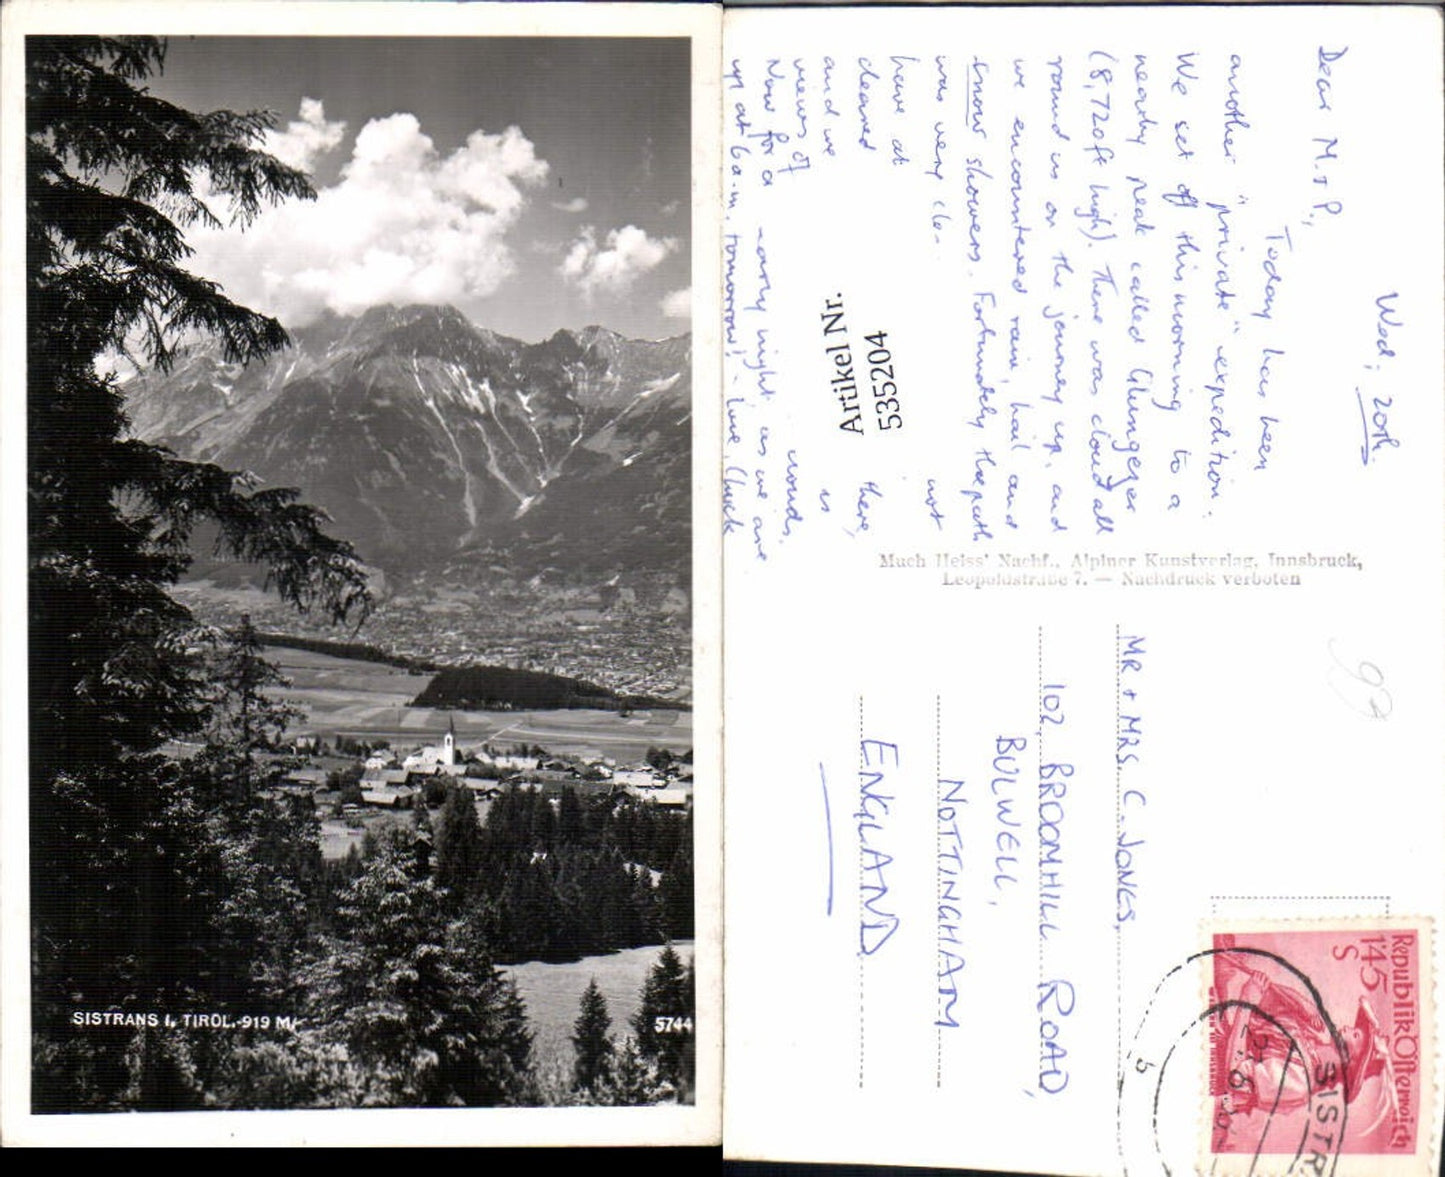 SISTRANS I. TIROL.-919 M.
5744
Wed, 20th.
Dear M. + P.,
Today has been
another "private" expedition.
We set off this morning to a
nearby peak called Glungezer
(8,720ft high). There was cloud all
round us on the journey up, and
we encountered rain, hail and
snow showers. Fortunately the path
was very
not
have at
cleared
there,
and we
is
views of
Now for a
early night as we are
up at 6 a.m. tomorrow! - Love, Chuck
Artikel Nr.
535204
Much Heiss' Nachf., Alpiner Kunstverlag, Innsbruck,
Leopoldstraße 7. — Nachdruck verboten
MR + MRS C. JONES,
102, BROOMHILL ROAD,
BULWELL,
NOTTINGHAM
ENGLAND
Republik Österreich
1'45
S
SISTR